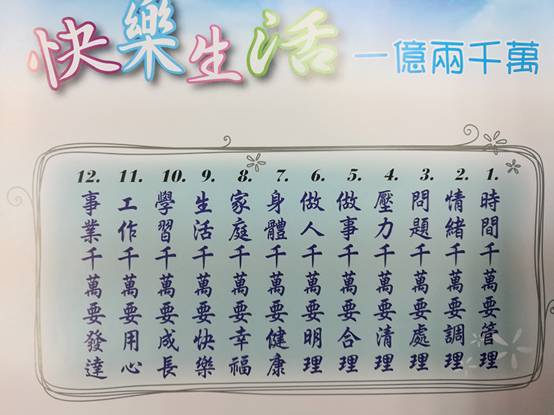 快樂生活 一億兩千萬
1. 時間千萬要管理
2. 情緒千萬要調理
3. 問題千萬要處理
4. 壓力千萬要清理
5. 做事千萬要合理
6. 做人千萬要明理
7. 身體千萬要健康
8. 家庭千萬要幸福
9. 生活千萬要快樂
10. 學習千萬要成長
11. 工作千萬要用心
12. 事業千萬要發達